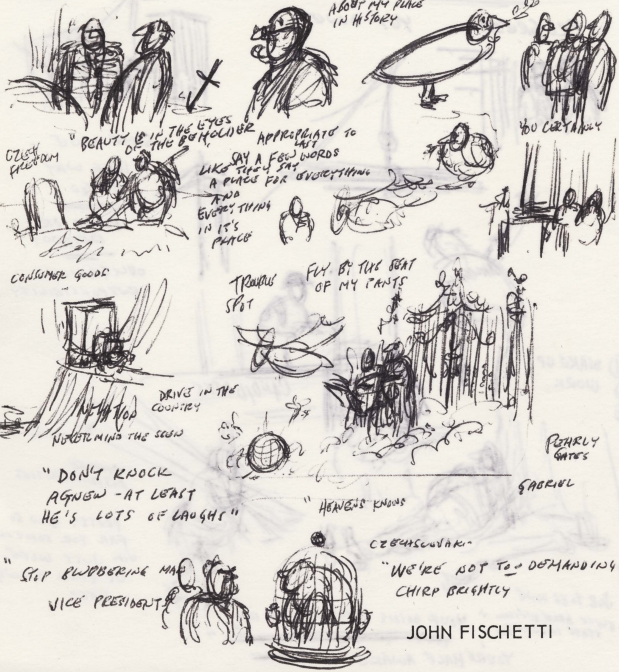 ABOUT MY PLACE
IN HISTORY
"BEAUTY IS IN THE EYES
OF THE BEHOLDER
YOU CERTAINLY
CZECH
FREEDOM
APPROPRIATE TO
LAST
SAY A FEW WORDS
LIKE THEY SAY
A PLACE FOR EVERYTHING
AND
EVERYTHING
IN IT'S
PLACE
CONSUMER GOODS
TROUBLE
SPOT
FLY BY THE SEAT
OF MY PANTS
DRIVE IN THE
COUNTRY
NEVERMIND THE
PEARLY
GATES
GABRIEL
"DON'T KNOCK
AGNEW - AT LEAST
HE'S LOTS OF LAUGHS"
"HEAVENS KNOWS
"STOP BLUBBERING
VICE PRESIDENT
"WE'RE NOT TOO DEMANDING
CHIRP BRIGHTLY
JOHN FISCHETTI